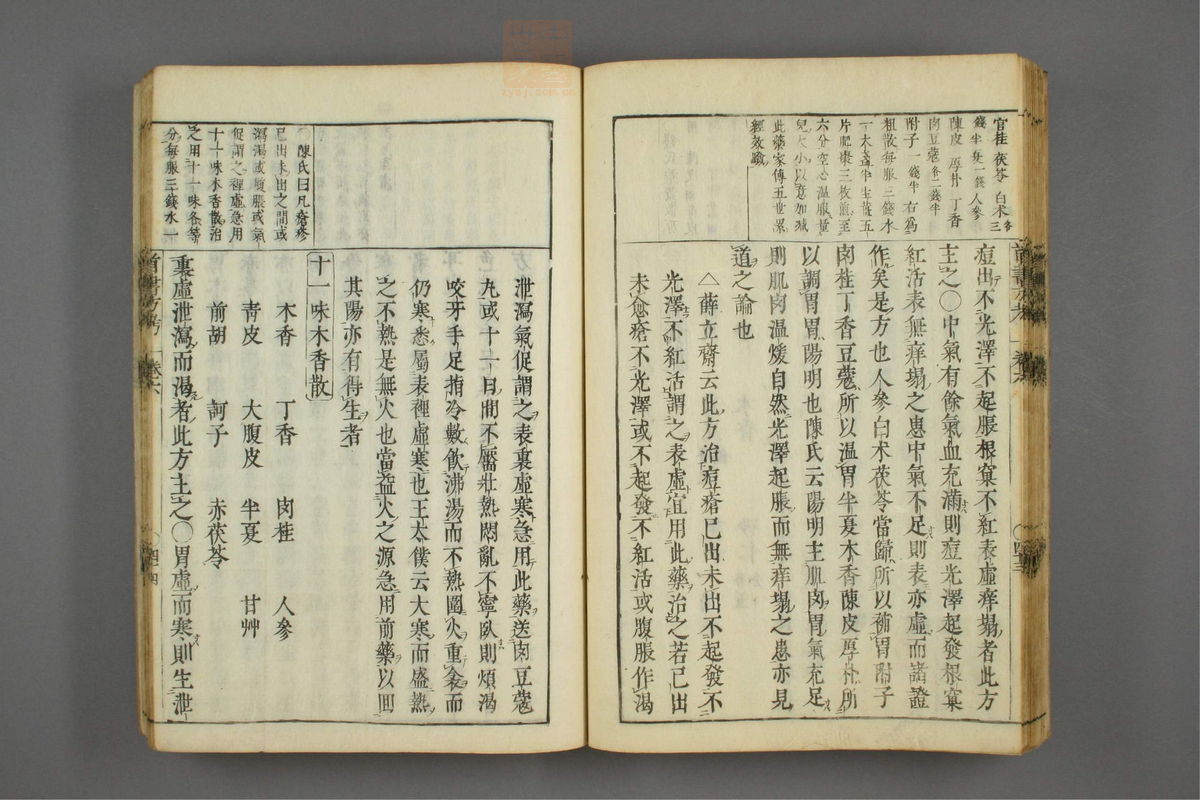 官桂 茯苓 白朮 各三
錢半 每一錢 人參
陳皮 厚朴 丁香
肉豆蔻 各二錢半
附子一錢半 右爲
粗散每服三錢水
一大盞半生薑五
片肥棗三枚煎至
六分空心溫服量
兒大小以意加減
此藥家傳五世累
經效驗
痘出不光澤不起脹根窠不紅表虛痒塌者此方
主之〇中氣有餘氣血充滿則痘光澤起發根窠
紅活表無痒塌之患中氣不足則表亦虛而諸證
作矣是方也人參白朮茯苓當歸所以補胃附子
肉桂丁香豆蔻所以溫胃半夏木香陳皮厚朴所
以調胃胃陽明也陳氏云陽明主肌肉胃氣充足
則肌肉溫煖自然光澤起脹而無痒塌之患亦見
道之論也
△薛立齋云此方治痘瘡已出未出不起發不
光澤不紅活謂之表虛宜用此藥治之若已出
未愈瘡不光澤或不起發不紅活或腹脹作渴
泄瀉氣促謂之表裏虛寒急用此藥送肉豆蔻
丸或十一日間不靨壯熱悶亂不寧臥則煩渴
咬牙手足指冷數飲沸湯而不熱圍火重衾而
仍寒悉屬表裡虛寒也王太僕云大寒而盛熱
之不熱是無火也當益火之源急用前藥以回
其陽亦有得生者
〇陳氏曰凡瘡疹
已出未出之間或
瀉渴或腹脹或氣
促謂之裡虛急用
十一味木香散治
之用十一味各等
分每服三錢水一
十一味木香散
木香 丁香 肉桂 人參
靑皮 大腹皮 半夏 甘艸
前胡 訶子 赤茯苓
裏虛泄瀉而渴者此方主之〇胃虛而寒則生泄
首書方考 卷六
四十四